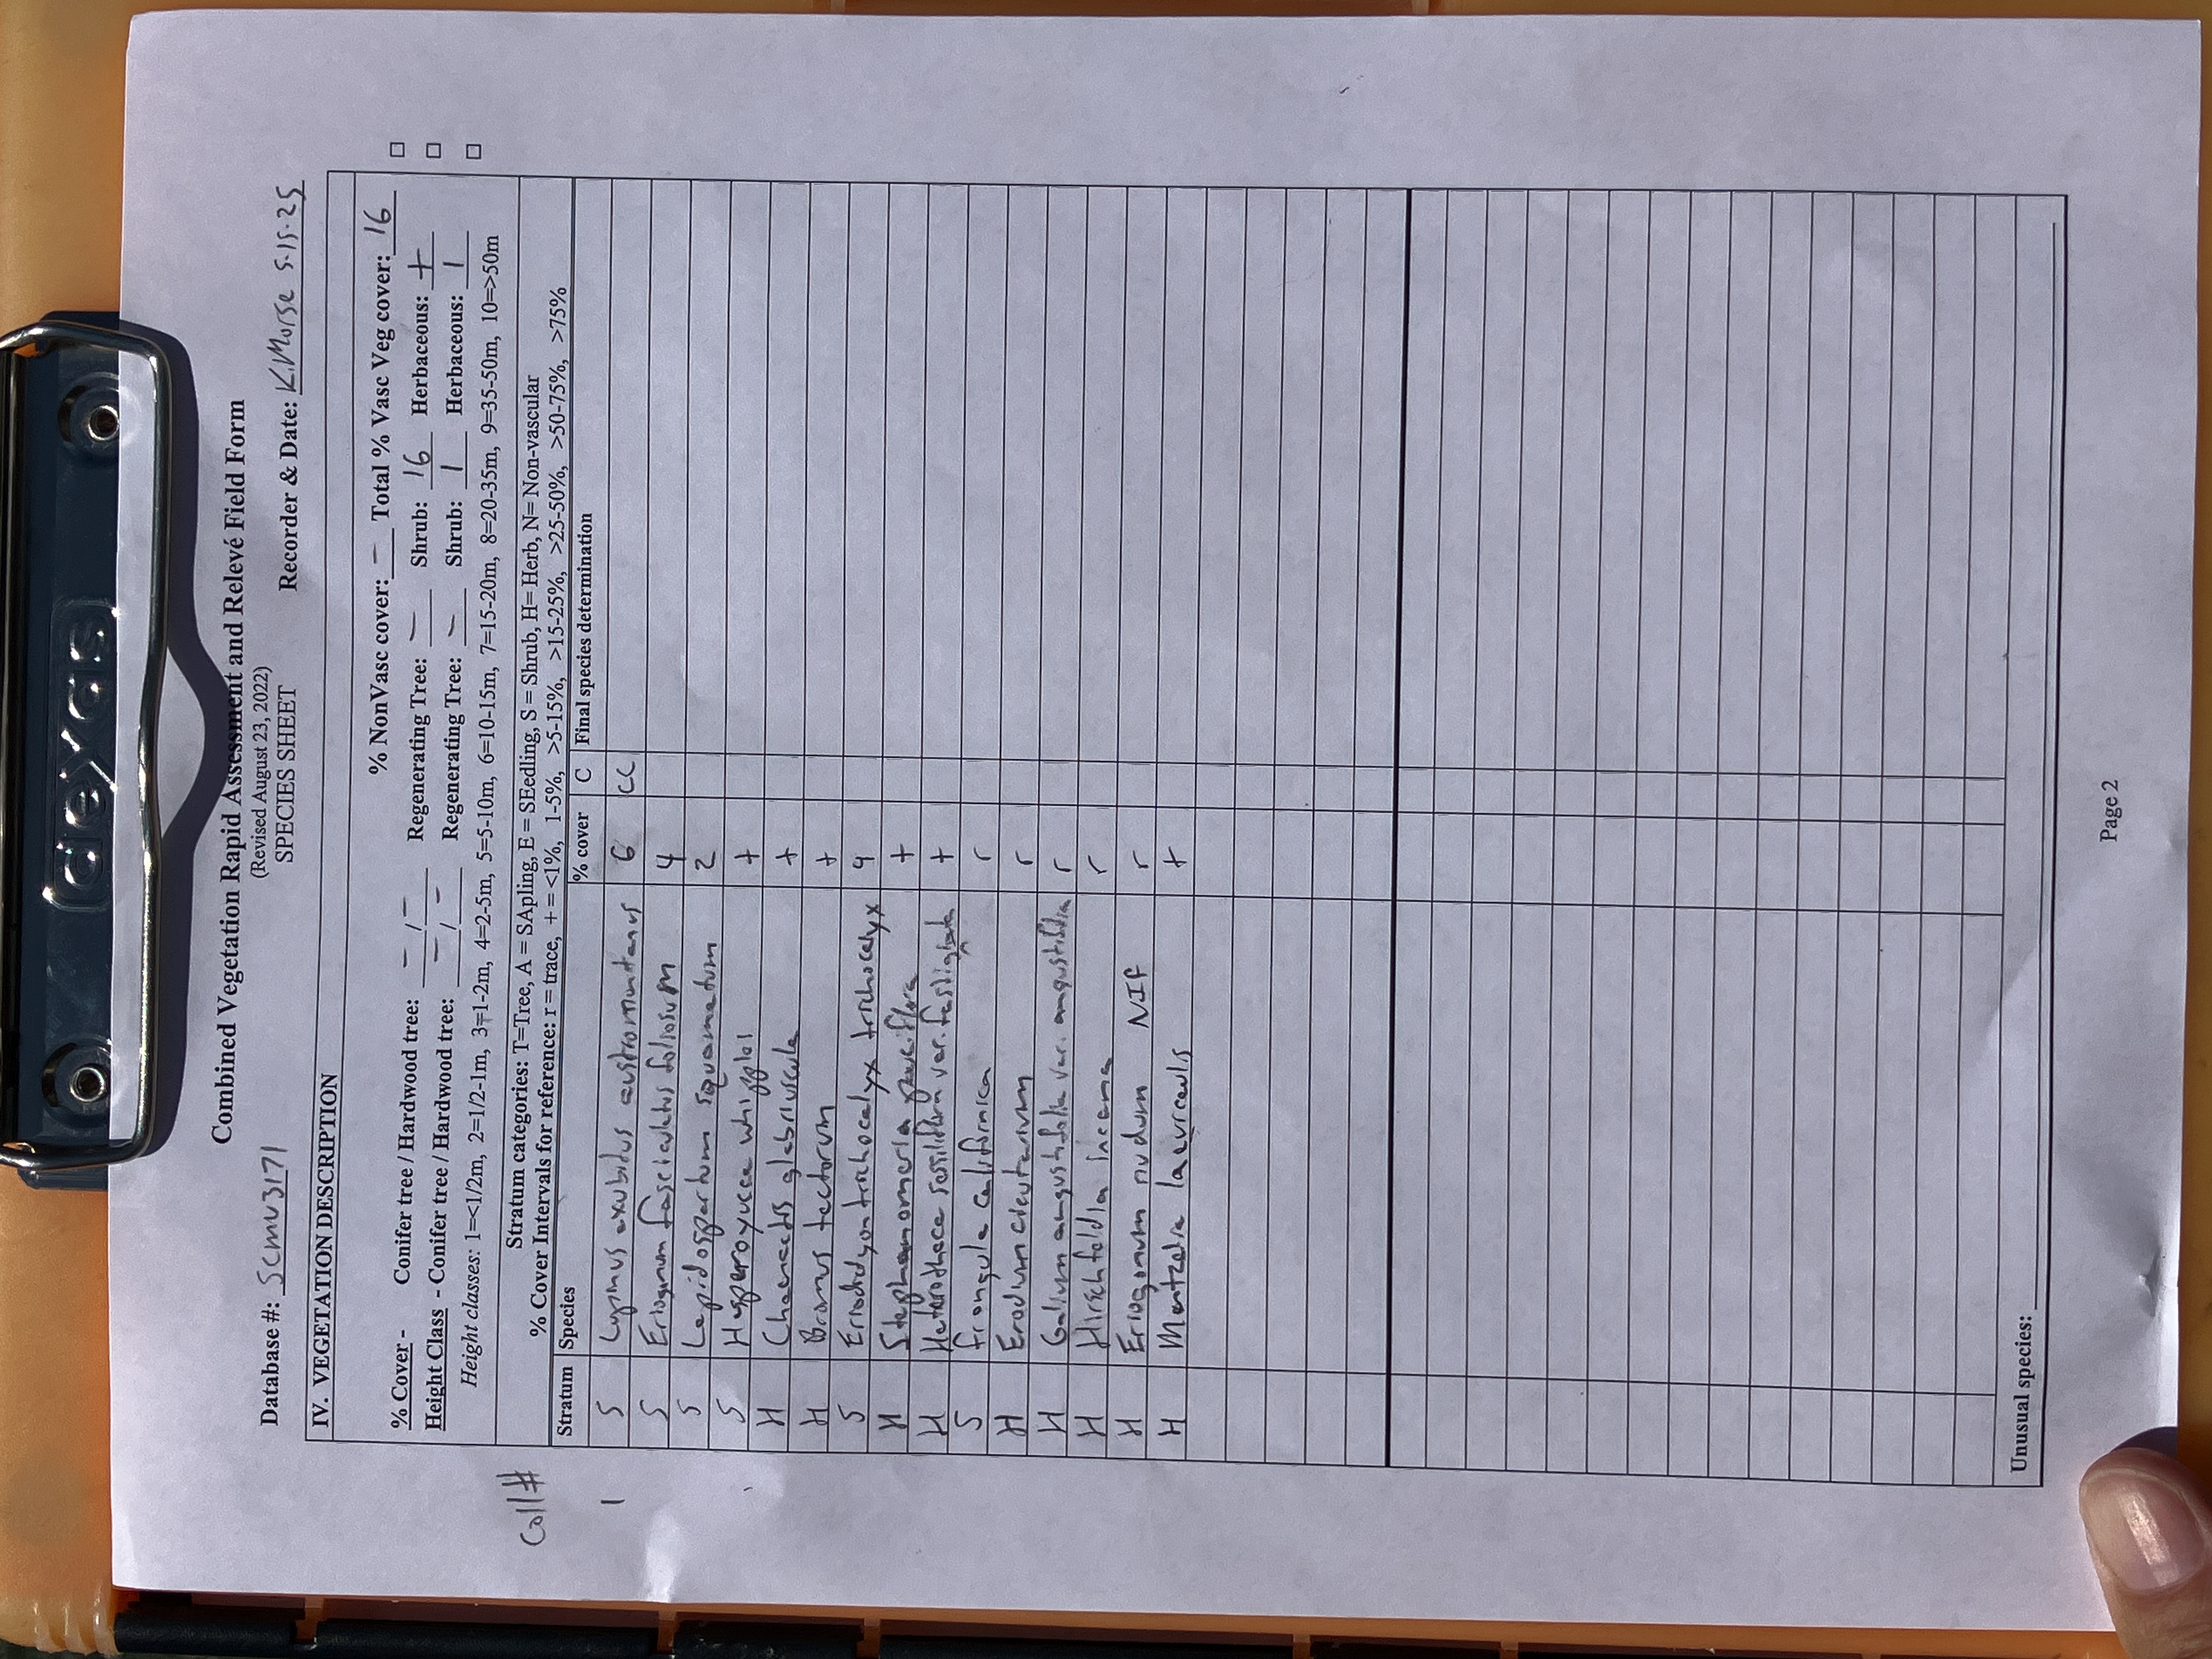 dexas
Combined Vegetation Rapid Assessment and Relevé Field Form
(Revised August 23, 2022)
SPECIES SHEET
Database #: SCMU3171 Recorder & Date: K. Morse 5.15.25
IV. VEGETATION DESCRIPTION
% NonVasc cover: – Total % Vasc Veg cover: 16
% Cover - Conifer tree / Hardwood tree: – / – Regenerating Tree: – Shrub: 16 Herbaceous: +
Height Class - Conifer tree / Hardwood tree: – / – Regenerating Tree: – Shrub: 1 Herbaceous: 1
Height classes: 1=<1/2m, 2=1/2-1m, 3=1-2m, 4=2-5m, 5=5-10m, 6=10-15m, 7=15-20m, 8=20-35m, 9=35-50m, 10=>50m
Stratum categories: T=Tree, A = SApling, E = SEedling, S = Shrub, H= Herb, N= Non-vascular
% Cover Intervals for reference: r = trace, + = <1%, 1-5%, >5-15%, >15-25%, >25-50%, >50-75%, >75%
Coll#
Stratum Species % cover C Final species determination
1 S Lupinus exubitus austromontanus 6 CC
S Eriogonum fasciculatus foliosum 4
S Lepidospartum squamatum 2
S Hesperoyucca whipplei +
H Chaenactis glabriuscula +
H Bromus tectorum +
S Eriodictyon trichocalyx trichocalyx 4
H Stephanomeria pauciflora +
H Heterotheca sessiliflora var. fastigiata +
S Frangula californica r
H Erodium cicutarium r
H Galium angustifolia var. angustifolia r
H Hirschfeldia incana r
H Eriogonum nudum NIF r
H Mentzelia laevicaulis +
Unusual species:
Page 2